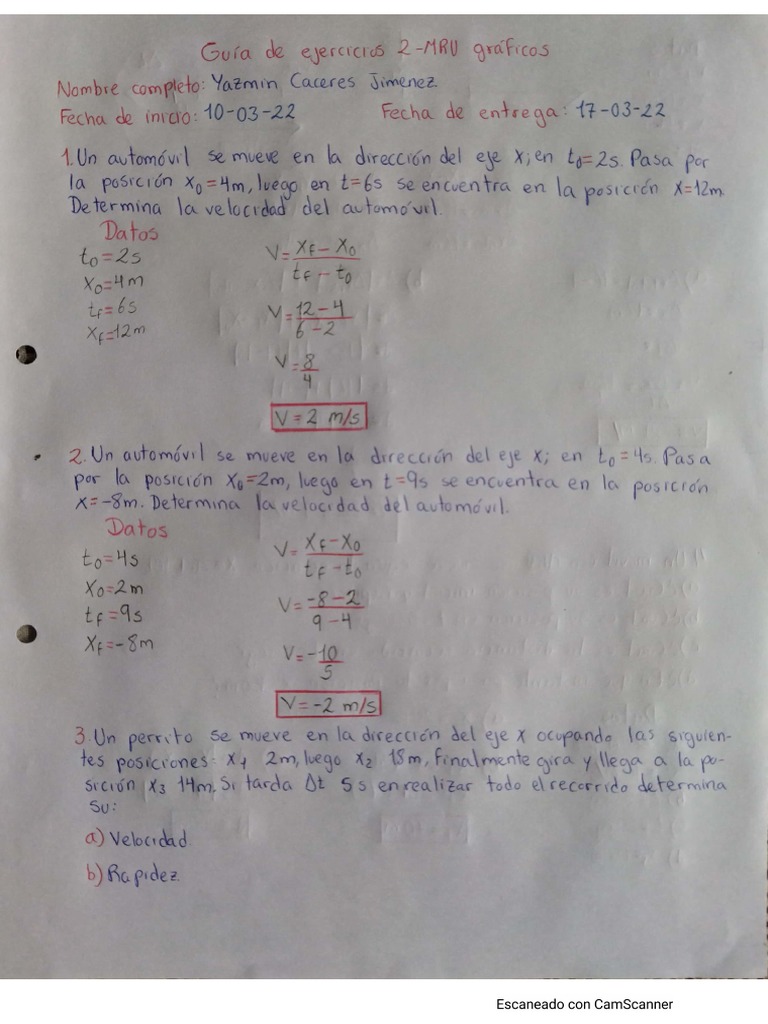 Guía de ejercicios 2-MRU gráficos
Nombre completo: Yazmin Caceres Jimenez
Fecha de inicio: 10-03-22 Fecha de entrega: 17-03-22
1. Un automóvil se mueve en la dirección del eje x; en t₀=2s. Pasa por
la posición x₀=4m, luego en t=6s se encuentra en la posición x=12m.
Determina la velocidad del automóvil.
Datos
t₀=2s
x₀=4m
tf=6s
xf=12m
V= xf-x₀ / tf-t₀
V= 12-4 / 6-2
V= 8 / 4
V=2 m/s
2. Un automóvil se mueve en la dirección del eje x; en t₀=4s. Pasa
por la posición x₀=2m, luego en t=9s se encuentra en la posición
x=-8m. Determina la velocidad del automóvil.
Datos
t₀=4s
x₀=2m
tf=9s
xf=-8m
V= xf-x₀ / tf-t₀
V= -8-2 / 9-4
V= -10 / 5
V=-2 m/s
3. Un perrito se mueve en la dirección del eje x ocupando las siguien-
tes posiciones: x₁ 2m, luego x₂ 18m, finalmente gira y llega a la po-
sición x₃ 14m. Si tarda Δt 5s en realizar todo el recorrido determina
su:
a) Velocidad
b) Rapidez
Escaneado con CamScanner